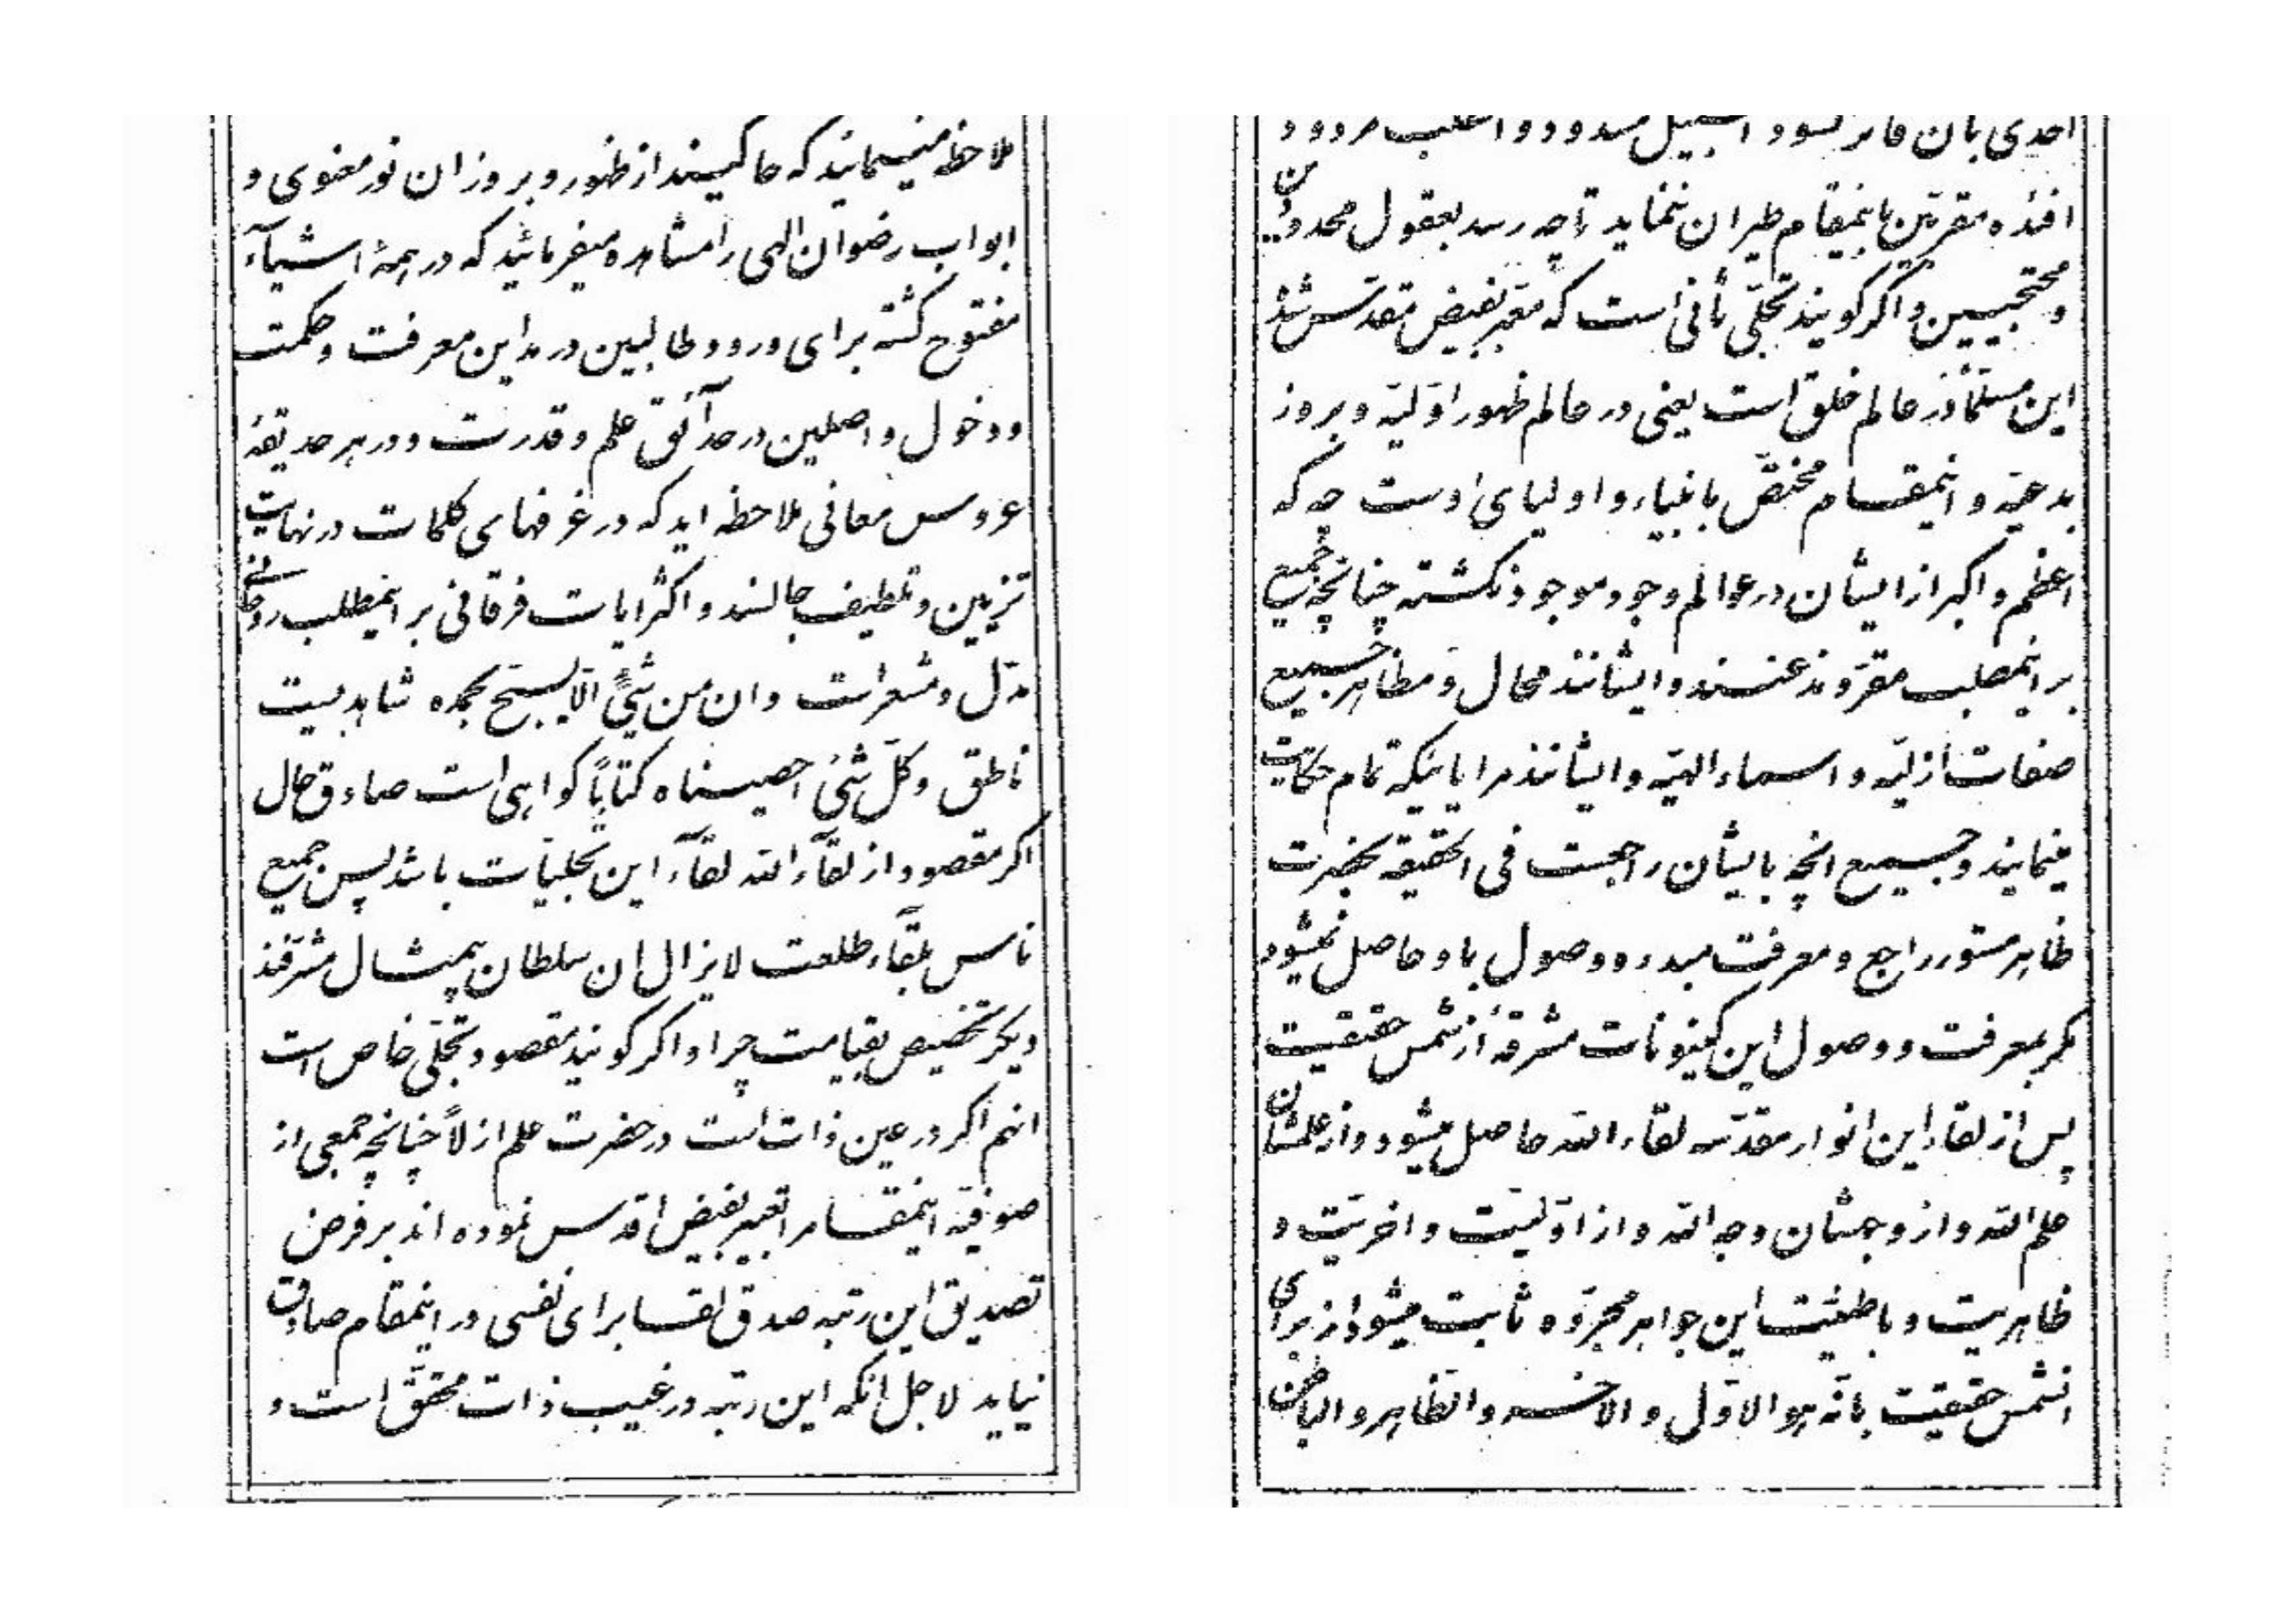 ملاحظه مینمایند که حاکیند از ظهور و بروز ان نور معنوی و
ابواب رضوان الهی را مشاهده میفرمائید که در همهٔ اشیآء
مفتوح کشته برای ورود طالبین در مداین معرفت و حکمت
و دخول واصلین در حدآئق علم و قدرت و در هر حدیقهٔ
عروس معانی ملاحظه اید که در غرفهای کلمات در نهایت
تزیین و تلطیف جالسند و اکثر ایات فرقانی بر اینمطلب روحانی
مدلّ و مشعر است و ان من شیٍ الّا یسبّح بحمده شاهدیست
ناطق و کلّ شیٍ احصیناه کتاباً کواهی است صادق حال
اکر مقصود از لقآء الله لقآء این تجلیّات باشد پس جمیع
ناس بلقآء طلعت لایزال ان سلطان بیمثال مشرّفند
دیکر تخصیص بقیامت چرا و اکر کویند مقصود تجلّی خاص است
انهم اکر در عین ذات است در حضرت علم ازلاً چنانچه جمعی از
صوفیّه اینمقام را تعبیر بفیض اقدس نموده اند بر فرض
تصدیق این رتبه صدق لقا برای نفسی در اینمقام صادق
نیاید لاجل انکه این رتبه در غیب ذات محقّق است و
احدی بان فائز نشود السبیل مسدود و الطلب مردود
افئده مقرّبین باینمقام طیران ننماید تا چه رسد بعقول محدودین
و محتجبین و اکر کویند تجلّی ثانی است که معبّر بفیض مقدّس شده
این مسلّماً در عالم خلق است یعنی در عالم ظهور اوّلیّه و بروز
بدعیّه و اینمقام مختصّ بانبیاء و اولیای اوست چه که
اعظم و اکبر از ایشان در عوالم وجود موجود نکشته چنانچه جمیع
بر اینمطلب مقرّ و مذعنند و ایشانند محال و مظاهر جمیع
صفات ازلیّه و اسماء الهیّه و ایشانند مرایائیکه تمام حکایت
مینمایند و جمیع انچه بایشان راجعست فی الحقیقه بحضرت
ظاهر مستور راجع و معرفت مبدء و وصول باو حاصل نمیشود
مکر بمعرفت و وصول این کینونات مشرقهٔ از شمس حقیقت
پس از لقاء این انوار مقدّسه لقاء الله حاصل میشود و از علمشان
علم الله و از وجهشان وجه الله و از اوّلیّت و اخریّت و
ظاهریّت و باطنیّت این جواهر مجرّده ثابت میشود از برای
انشمس حقیقت بانّه هو الاوّل و الاخر و الظّاهر و الباطن